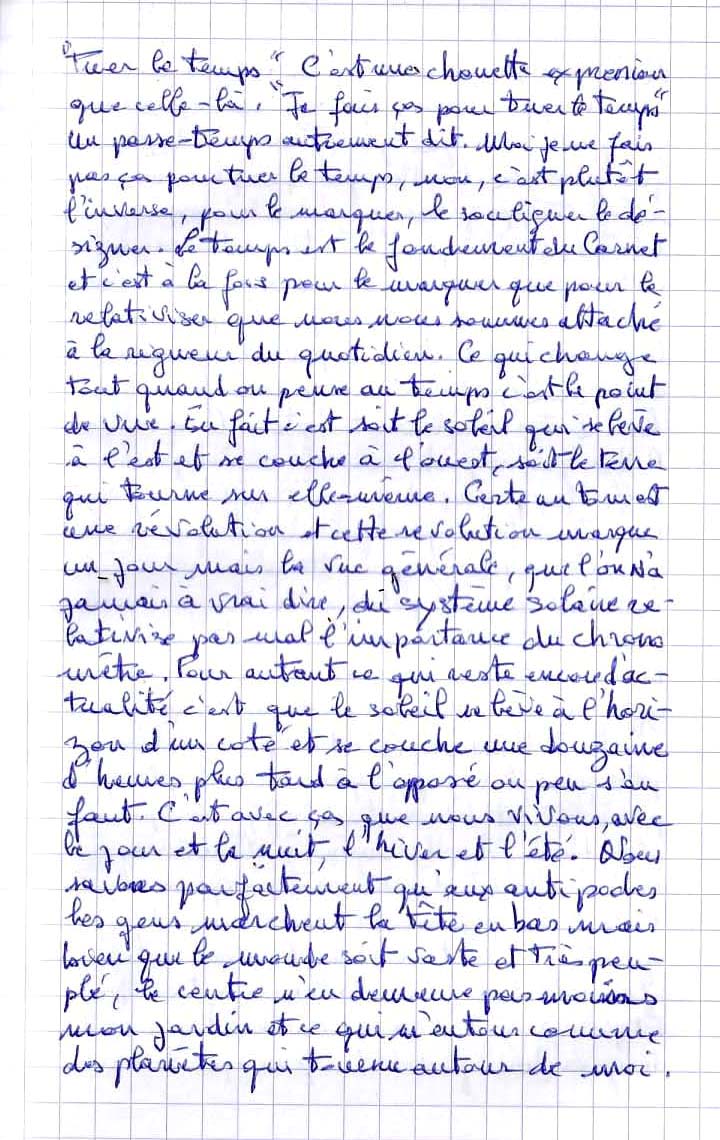 "Tuer le temps" C'est une chouette expression
que celle-là. "Je fais ça pour tuer le temps"
Un passe-temps autrement dit. Moi je ne fais
pas ça pour tuer le temps, non, c'est plutôt
l'inverse, pour le marquer, le souligner le dé-
signer. Le temps est le fondement du Carnet
et c'est à la fois pour le marquer que pour le
relativiser que nous nous sommes attaché
à la rigueur du quotidien. Ce qui change
tout quand on pense au temps c'est le point
de vue. En fait c'est soit le soleil qui se lève
à l'est et se couche à l'ouest, soit la terre
qui tourne sur elle-même. Certe un tour est
une révolution et cette revolution marque
un jour mais la vue générale, que l'on n'a
jamais à vrai dire, du système solaire re-
lativise pas mal l'importance du chrono
mètre. Pour autant ce qui reste encore d'ac-
tualité c'est que le soleil se lève à l'hori-
zon d'un coté et se couche une douzaine
d'heures plus tard à l'opposé ou peu s'en
faut. C'est avec ça que nous vivons, avec
le jour et la nuit, l'hiver et l'été. Nous
savons parfaitement qu'aux antipodes
les gens marchent la tête en bas mais
bien que le monde soit vaste et très peu-
plé, le centre n'en demeure pas moins
mon jardin et ce qui m'entoure comme
des planètes qui tourne autour de moi.